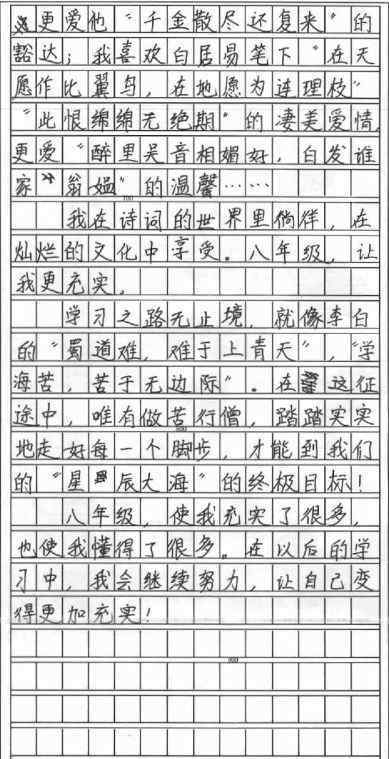 更爱他“千金散尽还复来”的
豁达；我喜欢白居易笔下“在天
愿作比翼鸟，在地愿为连理枝”
“此恨绵绵无绝期”的凄美爱情
更爱“醉里吴音相媚好，白发谁
家翁媪”的温馨……
我在诗词的世界里徜徉，在
灿烂的文化中享受。八年级，让
我更充实。
学习之路无止境，就像李白
的“蜀道难，难于上青天”，“学
海苦，苦于无边际”。在这征
途中，唯有做苦行僧，踏踏实实
地走好每一个脚步，才能到我们
的“星辰大海”的终极目标！
八年级，使我充实了很多，
也使我懂得了很多。在以后的学
习中，我会继续努力，让自己变
得更加充实！